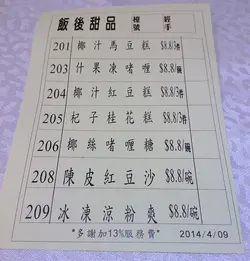 飯後甜品 檯號 經手
201 椰汁馬豆糕 $8.8/3件
203 什果凍啫喱 $8.8/碗
204 椰汁紅豆糕 $8.8/3件
205 杞子桂花糕 $8.8/3件
206 椰絲啫喱糖 $8.8/碟
208 陳皮紅豆沙 $8.8/碗
209 冰凍涼粉爽 $8.8/碗
*多謝加13%服務費* 2014/4/09